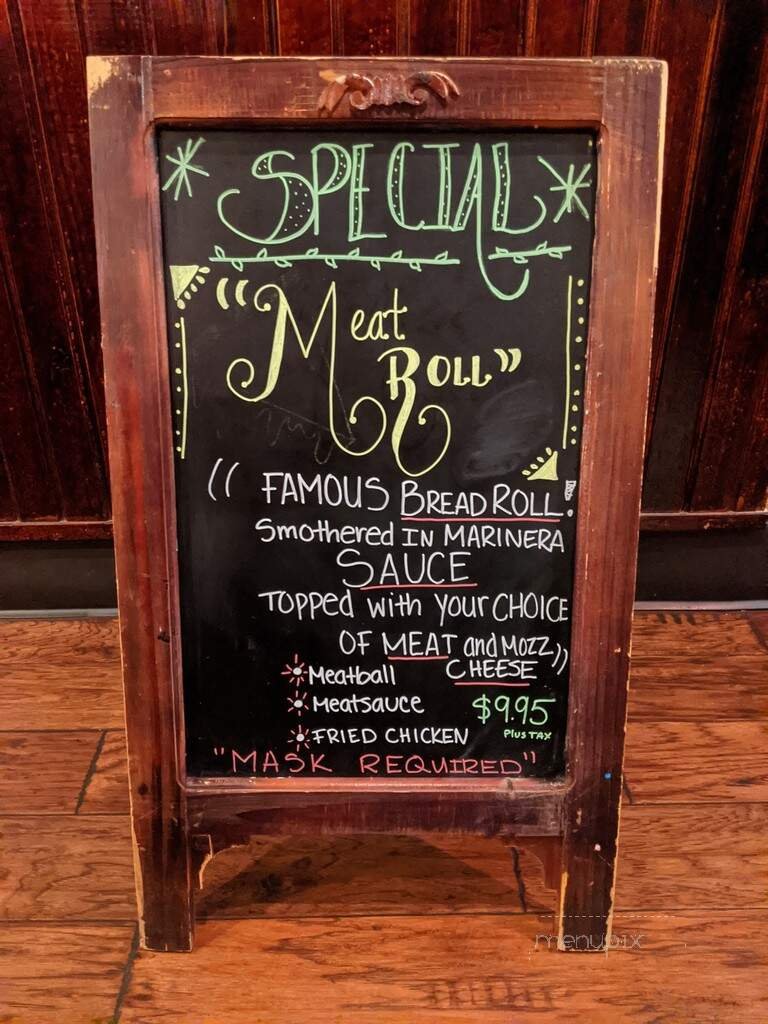 SPECIAL
"Meat
ROLL"
(( FAMOUS BREAD ROLL!
Smothered IN MARINERA
SAUCE
TOPPED with your CHOICE
OF MEAT and MOZZ
CHEESE ))
Meatball
Meatsauce
$9.95
Plus TAX
FRIED CHICKEN
"MASK REQUIRED"
menupix